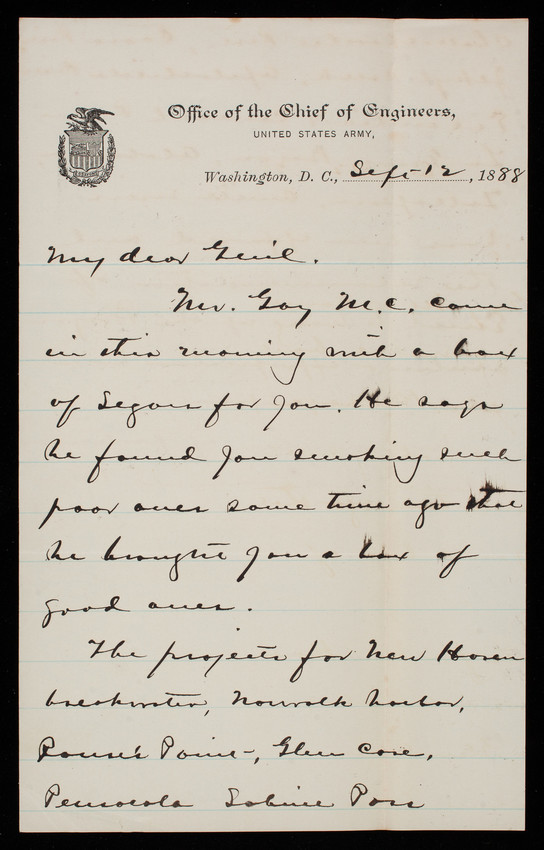 Office of the Chief of Engineers,
UNITED STATES ARMY,
Washington, D. C., Sept 12, 1888
My dear Gen'l.
Mr. Gay M.C. came
in this morning with a box
of Segars for you. He says
he found you smoking such
poor ones some time ago that
he brought you a box of
good ones.
The projects for New Haven
breakwater, Norwalk harbor,
Rouse's Point, Glen Cove,
Pensacola Sabine Pass